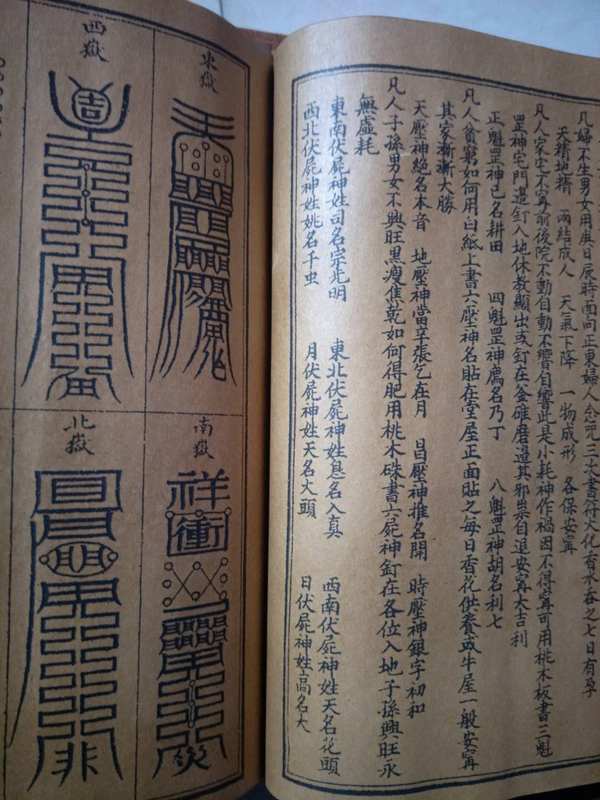 凡婦不生男女用庚日辰時面向正東婦人念咒三六書符火化香水吞之七日有孕
天精地精 兩結成人 天氣下降 一物成形 各保安寧
凡人家宅不寧前後院不動自動不響自響此是小耗神作禍因不得寧可用桃木板書三魁
罡神宅門邊釘入地休教顯出或釘在金碓磨邊其邪祟自退安寧大吉利
正魁罡神己名耕田 四魁罡神鷹名乃丁 八魁罡神胡名利七
凡人貧窮如何用白紙上書六壓神名貼在堂屋正面貼之每日香花供養或牛屋一般安寧
其家漸漸大勝
天壓神絕名本音 地壓神當早張乞在月 昌壓神推名開 時壓神銀字初和
凡人子孫男女不興旺黑瘦焦乾如何得肥用桃木硃書六屍神釘在各位入地子孫興旺永
無虛耗
東南伏屍神姓司名宗光明 東北伏屍神息名入真 西南伏屍神姓天名花頭
西北伏屍神姓姚名千虫 月伏屍神姓天名大頭 日伏屍神姓高名大
東嶽
西嶽
南嶽
北嶽